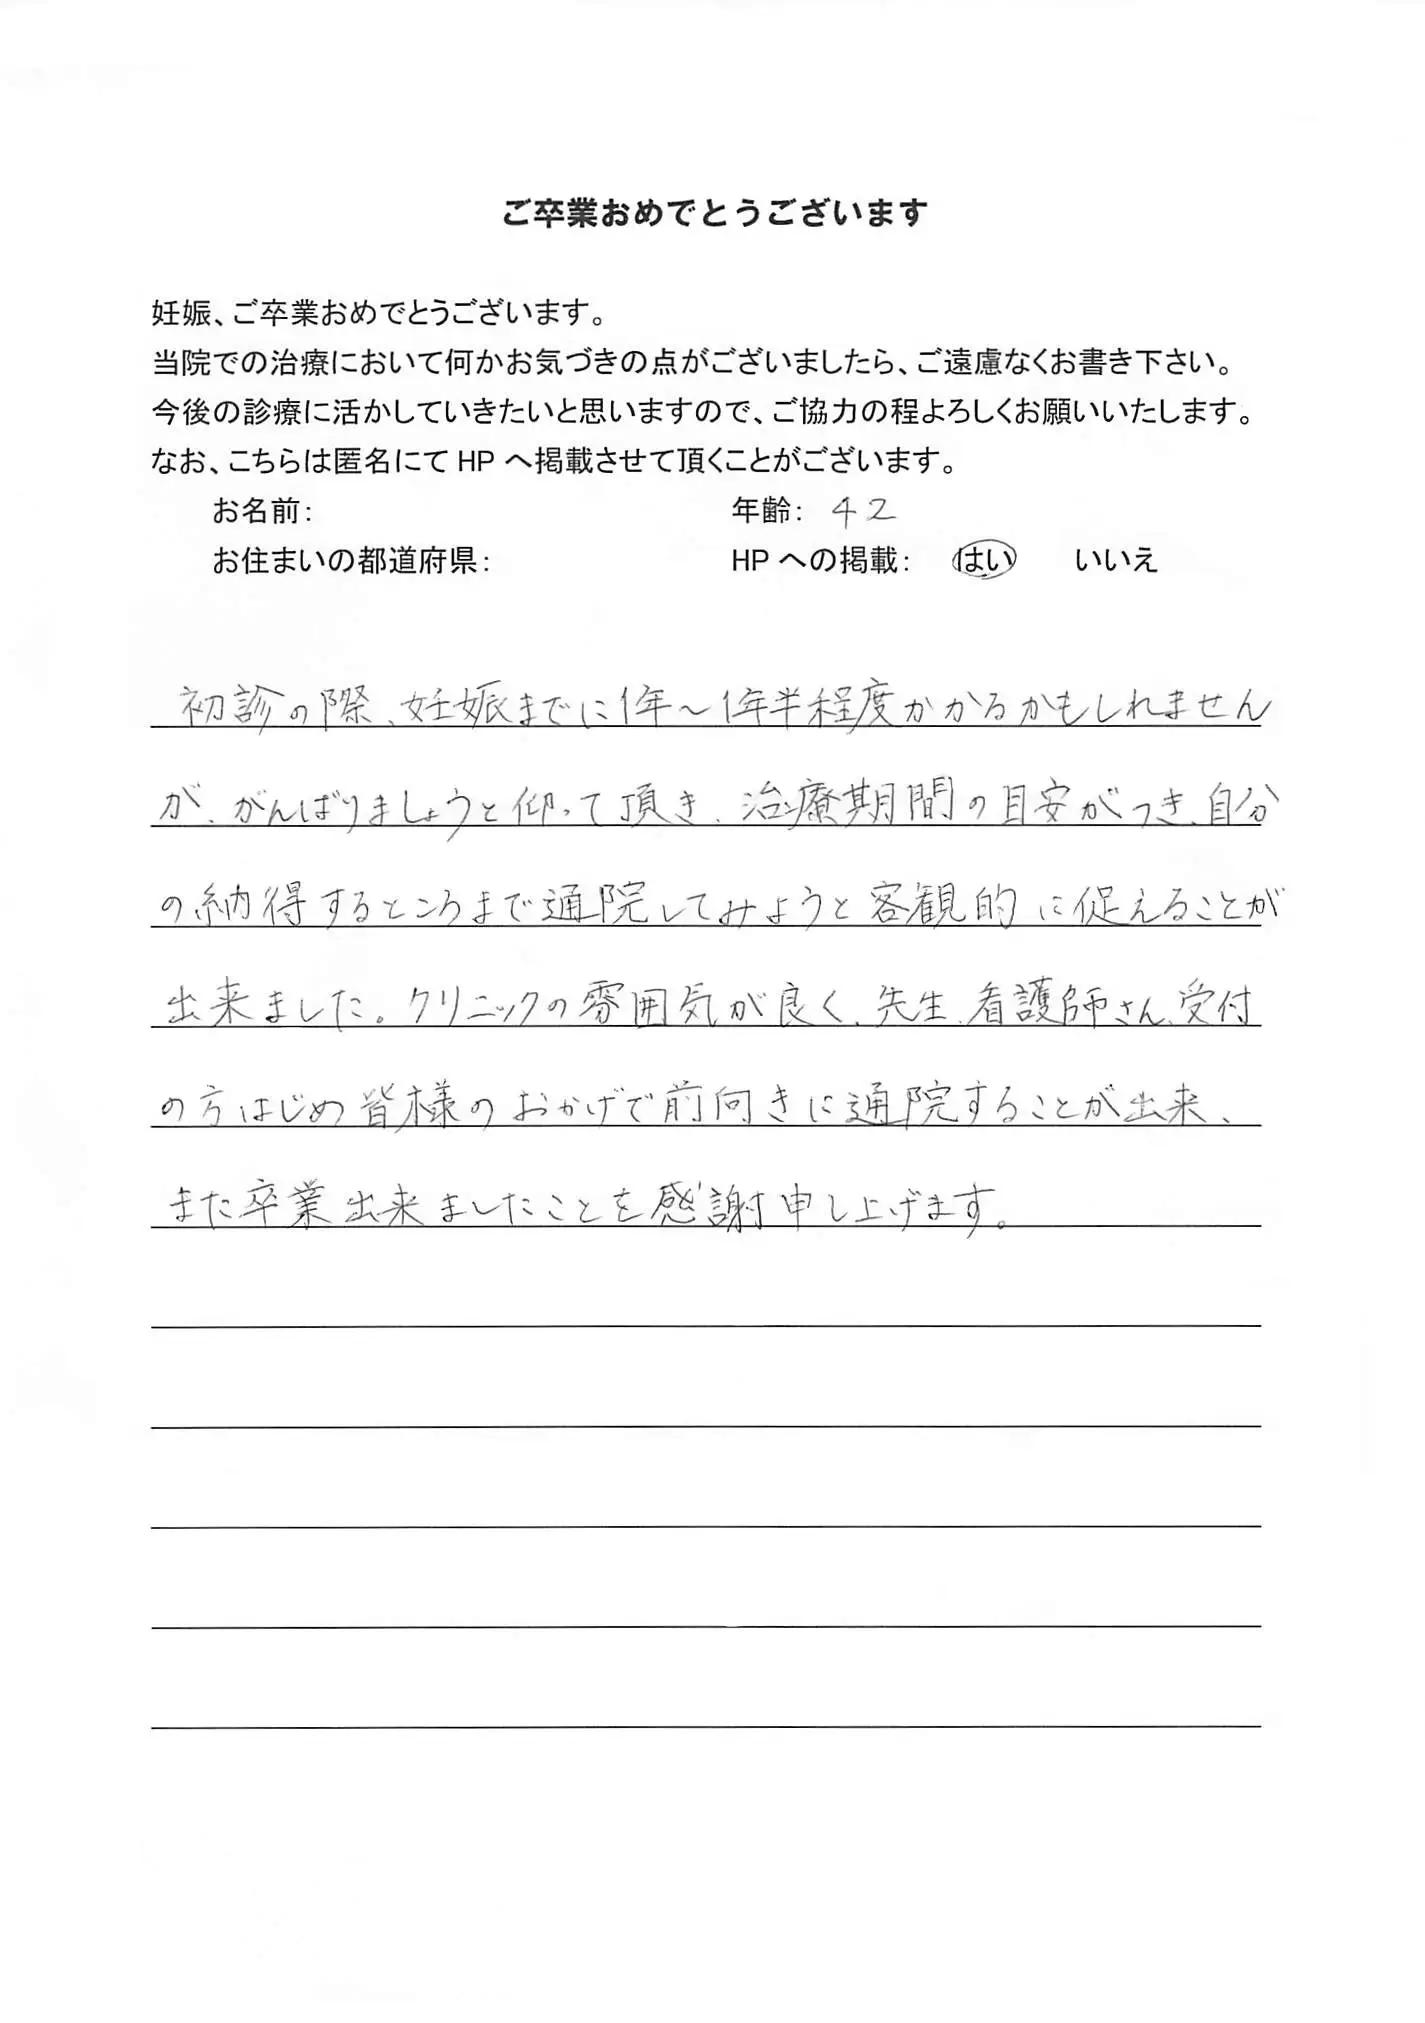 ご卒業おめでとうございます
妊娠、ご卒業おめでとうございます。
当院での治療において何かお気づきの点がございましたら、ご遠慮なくお書き下さい。
今後の診療に活かしていきたいと思いますので、ご協力の程よろしくお願いいたします。
なお、こちらは匿名にて HP へ掲載させて頂くことがございます。
お名前: 年齢: 42
お住まいの都道府県: HP への掲載: はい いいえ
初診の際、妊娠までに1年～1年半程度かかるかもしれません
が、がんばりましょうと仰って頂き、治療期間の目安がつき、自分
の納得するところまで通院してみようと客観的に促えることが
出来ました。クリニックの雰囲気が良く、先生、看護師さん、受付
の方はじめ皆様のおかげで前向きに通院することが出来、
また卒業出来ましたことを感謝申し上げます。